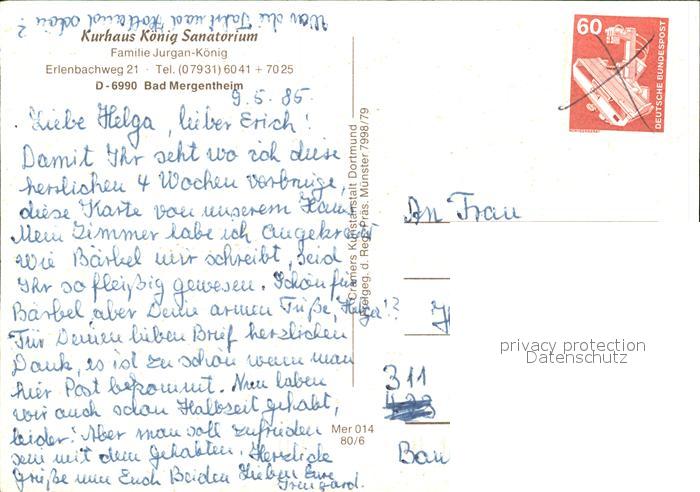 War die Fahrt nach Holland schön?
Kurhaus König Sanatorium
Familie Jurgan-König
Erlenbachweg 21 · Tel. (07931) 6041 + 7025
D-6990 Bad Mergentheim
9.5.85.
Liebe Helga, lieber Erich!
Damit Ihr seht wo ich diese
herrlichen 4 Wochen verbringe,
diese Karte von unserem Haus.
Mein Zimmer habe ich angekreuzt
Wie Bärbel mir schreibt, seid
Ihr so fleißig gewesen. Schön für
Bärbel aber Deine armen Füße, Helga!?
Für Deinen lieben Brief herzlichen
Dank, es ist zu schön wenn man
hier Post bekommt. Nun haben
wir auch schon Halbzeit gehabt,
leider! Aber man soll zufrieden
sein mit dem Gehabten. Herzliche
Grüße nun Euch Beiden Lieben Eure
Irmgard.
Cramers Kunstanstalt Dortmund
Freigeg. d. Reg. Präs. Münster 7998/79
Mer 014
80/6
60
DEUTSCHE BUNDESPOST
An Frau
privacy protection
Datenschutz
311